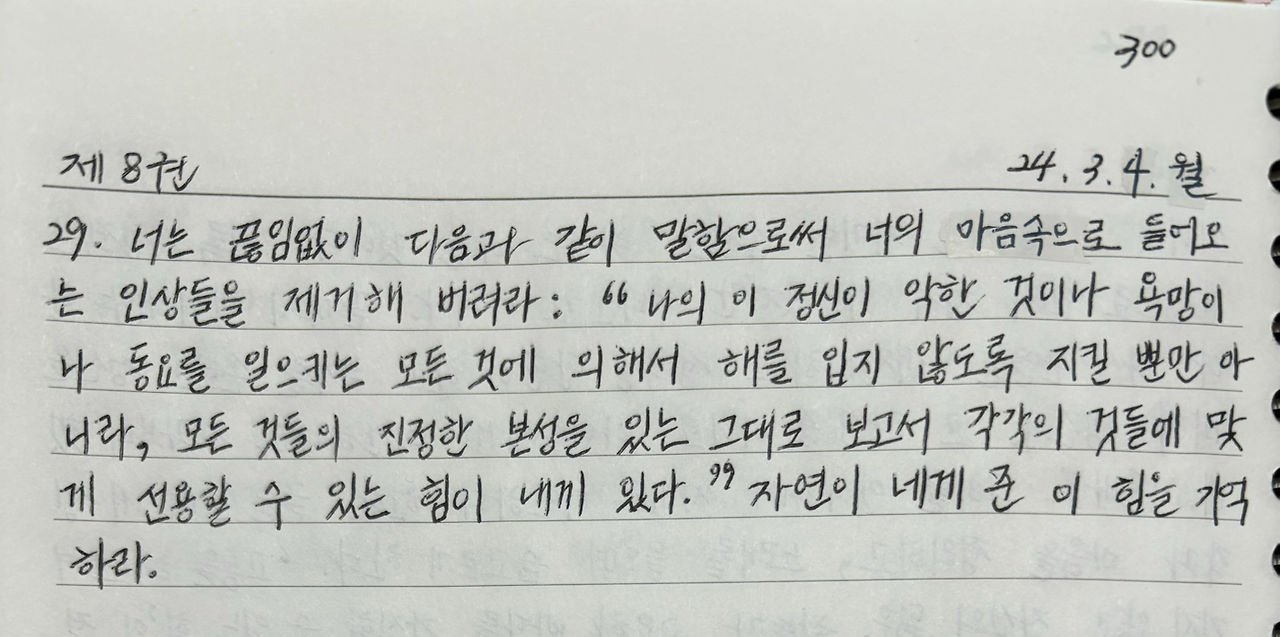 300
제 8권 24.3.4.월
29. 너는 끊임없이 다음과 같이 말함으로써 너의 마음속으로 들어오
는 인상들을 제거해 버려라: "나의 이 정신이 악한 것이나 욕망이
나 동요를 일으키는 모든 것에 의해서 해를 입지 않도록 지킬 뿐만 아
니라, 모든 것들의 진정한 본성을 있는 그대로 보고서 각각의 것들에 맞
게 선용할 수 있는 힘이 내게 있다." 자연이 네게 준 이 힘을 기억
하라.